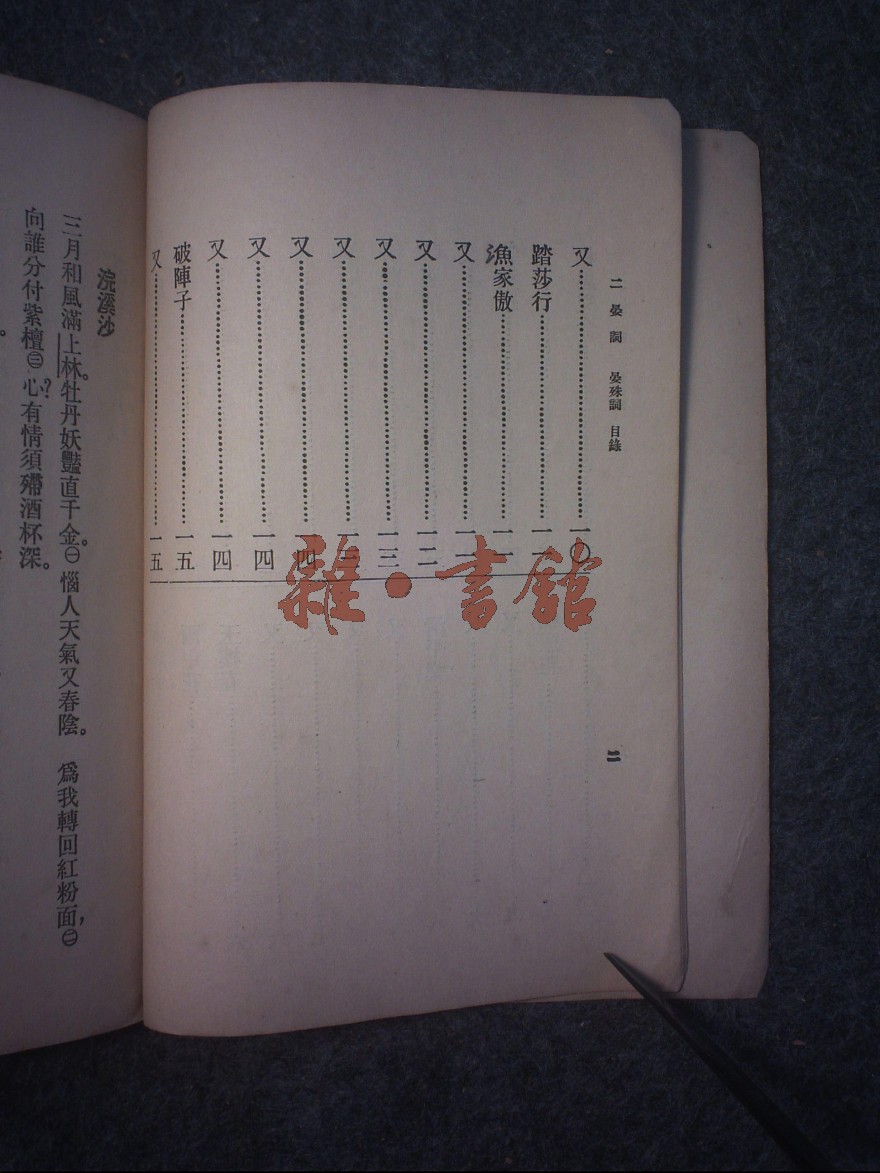 二晏詞 晏殊詞 目錄
二
又……一〇
踏莎行……一一
漁家傲……一一
又……一二
又……一二
又……一三
又……一三
又……一四
又……一四
又……一四
破陣子……一五
又……一五
浣溪沙
三月和風滿上林。牡丹妖豔直千金。㊀惱人天氣又春陰。 爲我轉回紅粉面,㊁
向誰分付紫檀㊂心?有情須殢酒杯深。
雜·書館